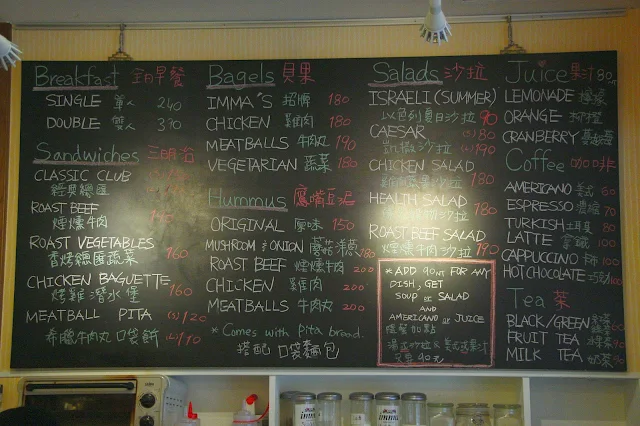 Breakfast 早餐
SINGLE 單人 240
DOUBLE 雙人
Sandwiches 三明治
CLASSIC CLUB
經典總匯
ROAST BEEF
煙燻牛肉
ROAST VEGETABLES 160
香烤總匯蔬菜
CHICKEN BAGUETTE 160
烤雞潛水堡
MEATBALL PITA (S) 120
希臘牛肉丸口袋餅 110
Bagels 貝果
IMMA'S 招牌 180
CHICKEN 雞肉 180
MEATBALLS 牛肉丸 190
VEGETARIAN 蔬菜 180
Hummus 鷹嘴豆泥
ORIGINAL 原味 150
MUSHROOM & ONION 蘑菇洋蔥 180
ROAST BEEF 煙燻牛肉 200
CHICKEN 雞肉 200
MEATBALLS 牛肉丸 200
*Comes with Pita bread.
搭配 口袋麵包
Salads 沙拉
ISRAELI (SUMMER)
以色列夏日沙拉 90
CAESAR 180
凱撒沙拉 190
CHICKEN SALAD
沙拉 180
HEALTH SALAD
沙拉 180
ROAST BEEF SALAD
煙燻牛肉沙拉 190
*ADD 90NT FOR ANY
DISH, GET
SOUP or SALAD
AND
AMERICANO or JUICE
湯或沙拉 & 美式或果汁
只要90元
Juice 果汁 80
LEMONADE 檸檬
ORANGE 柳橙
CRANBERRY 蔓越莓
Coffee 咖啡
AMERICANO 美式 60
ESPRESSO 濃縮 70
TURKISH 土耳其 80
LATTE 拿鐵 100
CAPPUCCINO 卡布 100
HOT CHOCOLATE 巧克力 100
Tea 茶
BLACK/GREEN
FRUIT TEA 水果茶 90
MILK TEA 奶茶 90